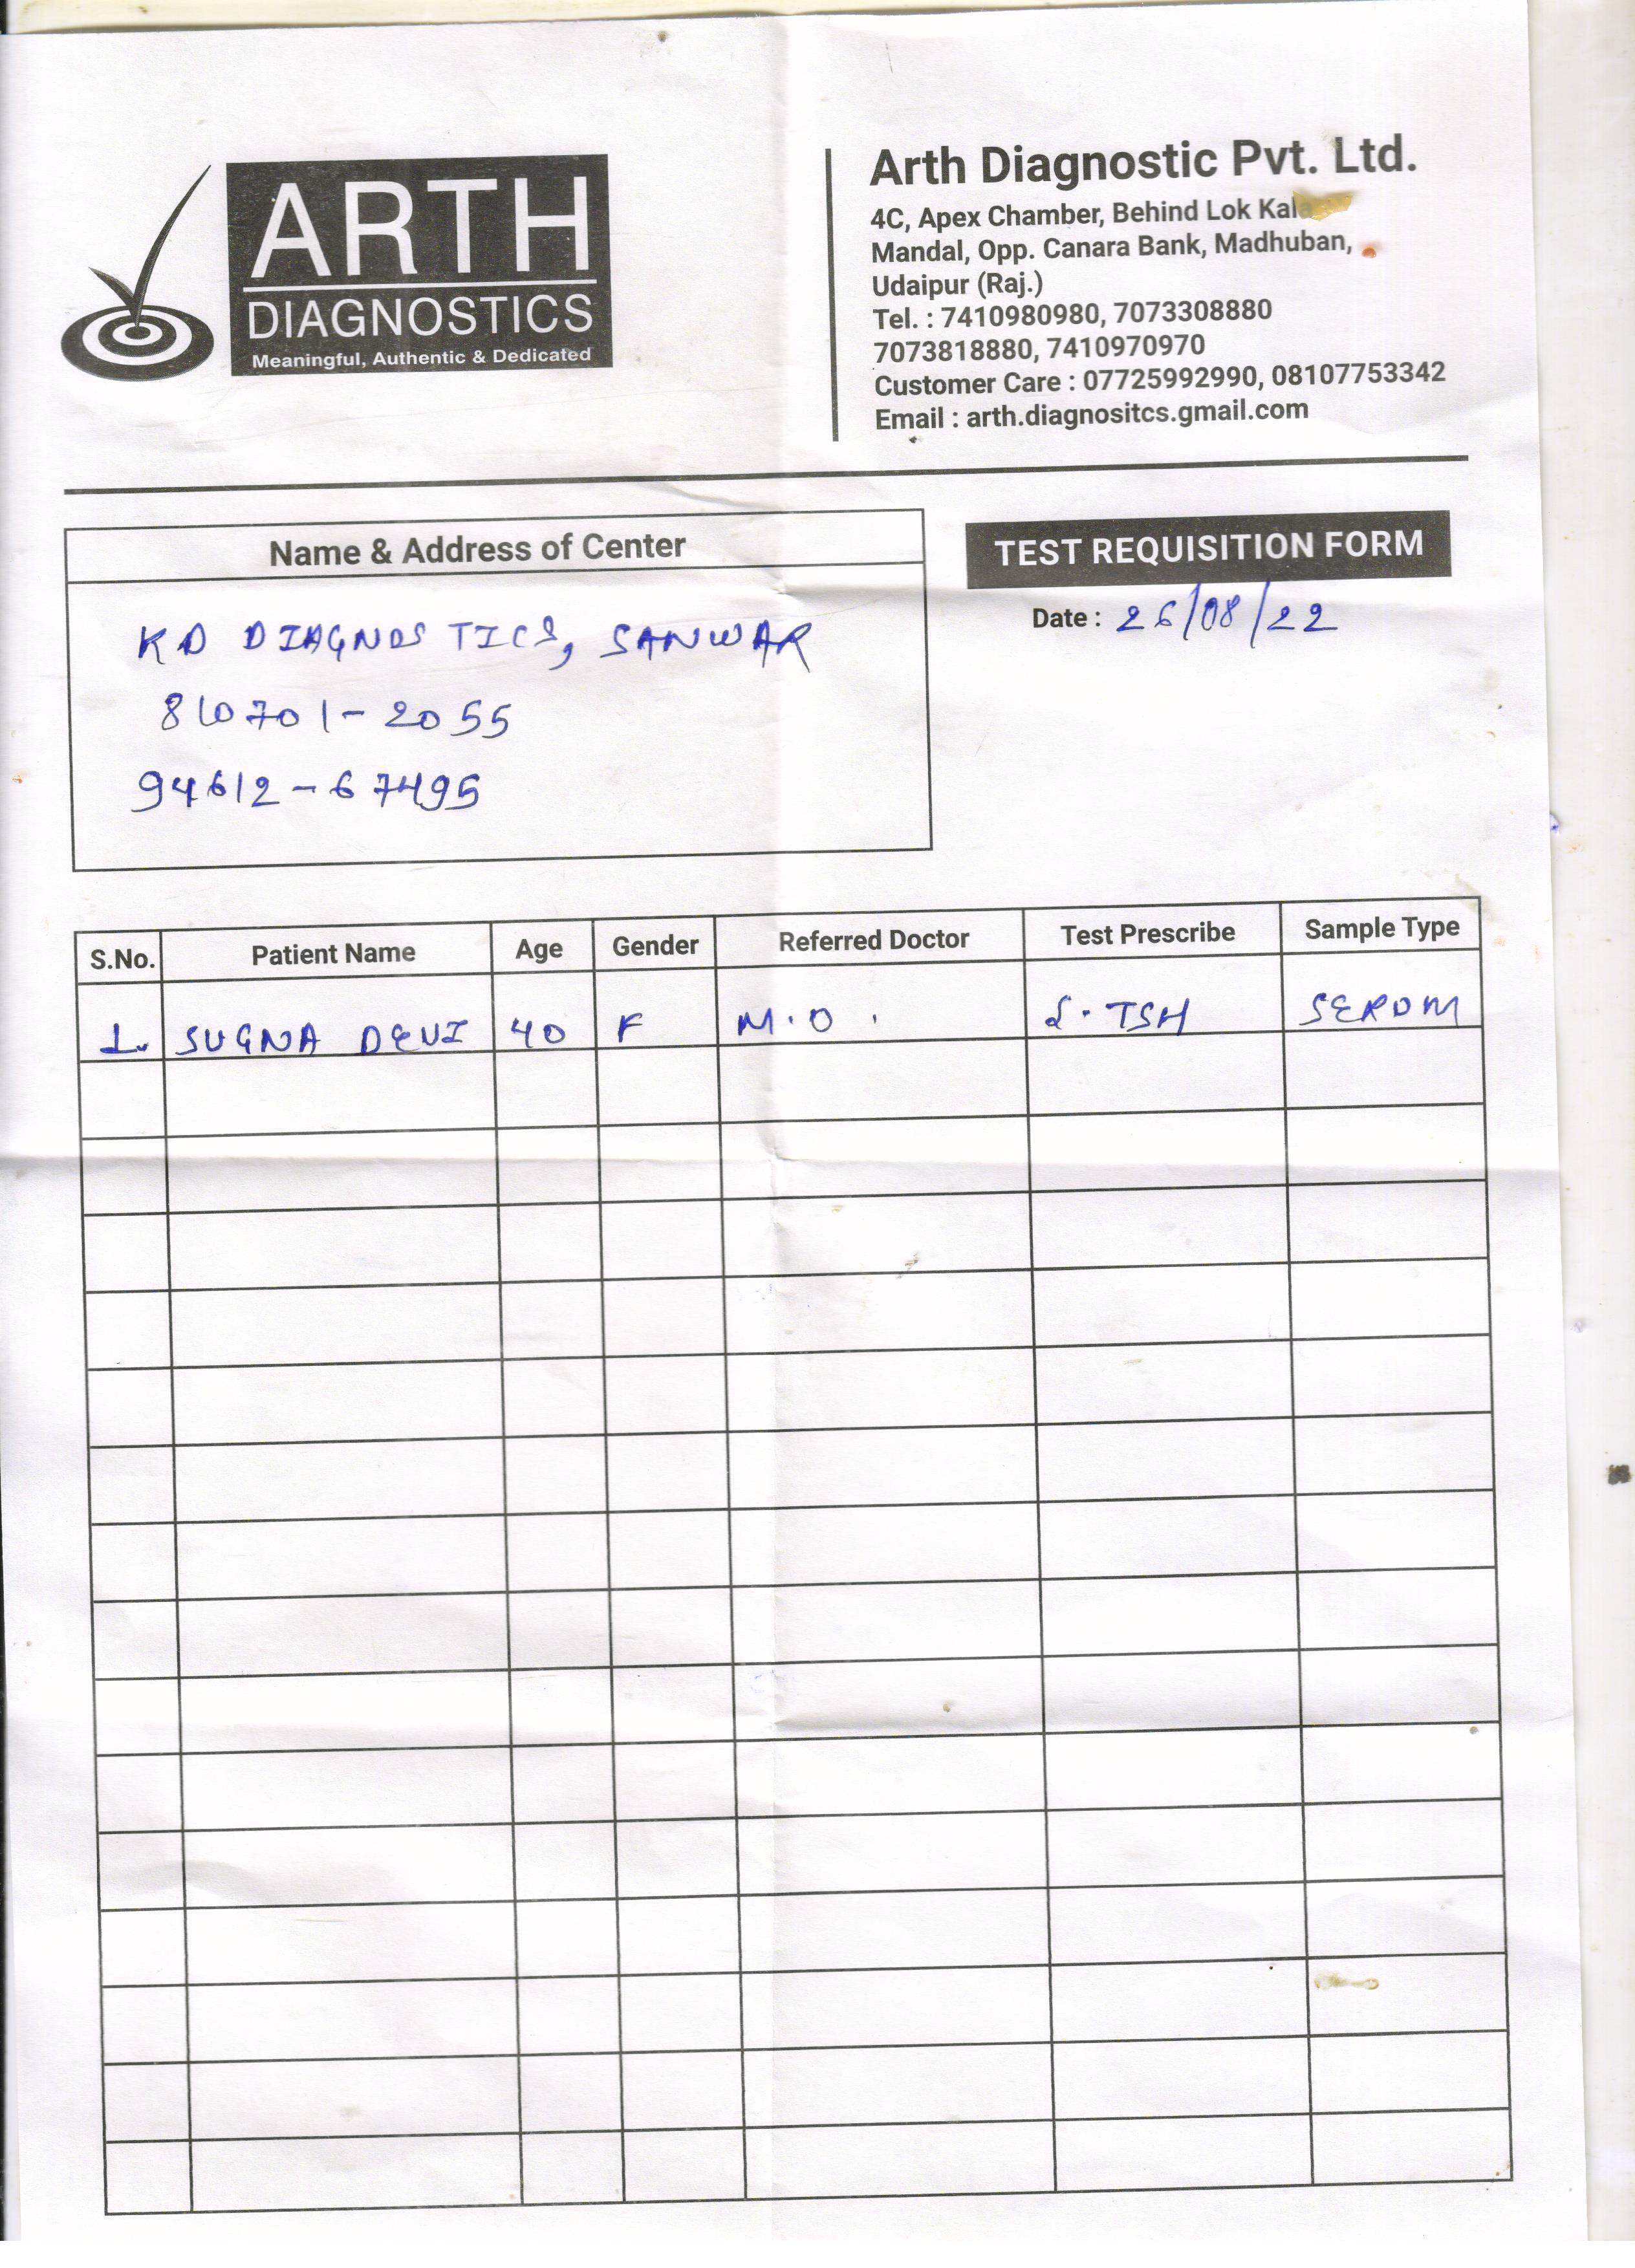 ARTH
DIAGNOSTICS
Meaningful, Authentic & Dedicated
Arth Diagnostic Pvt. Ltd.
4C, Apex Chamber, Behind Lok Kala
Mandal, Opp. Canara Bank, Madhuban,
Udaipur (Raj.)
Tel. : 7410980980, 7073308880
7073818880, 7410970970
Customer Care : 07725992990, 08107753342
Email : arth.diagnositcs.gmail.com
Name & Address of Center
TEST REQUISITION FORM
Date : 26/08/22
KD DIAGNOSTICS, SANWAR
810701-2055
94612-67495
S.No. Patient Name Age Gender Referred Doctor Test Prescribe Sample Type
1. SUGNA DEVI 40 F M.O. S.TSH SERUM